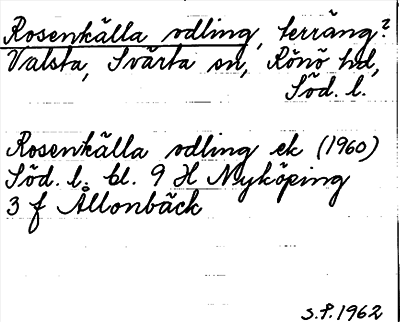 Rosenkälla odling, terräng?
Valsta, Svärta sn, Rönö hd,
Söd. l.
Rosenkälla odling ek (1960)
Söd. l. bl. 9 H Nyköping
3 f Ållonbäck
S.P. 1962